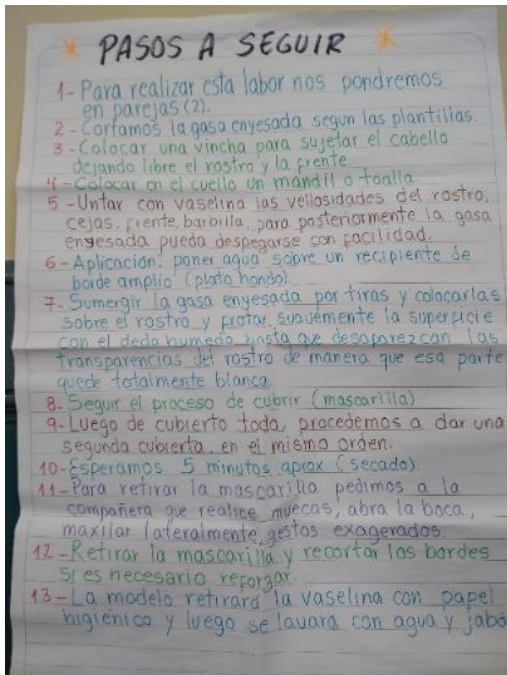 PASOS A SEGUIR
1- Para realizar esta labor nos pondremos
en parejas (2).
2- Cortamos la gasa enyesada segun las plantillas.
3- Colocar una vincha para sujetar el cabello
dejando libre el rostro y la frente.
4- Colocar en el cuello un mandil o toalla
5- Untar con vaselina las vellosidades del rostro,
cejas, frente, barbilla, para posteriormente la gasa
enyesada pueda despegarse con facilidad.
6- Aplicación: poner agua sobre un recipiente de
borde amplio (plato hondo).
7- Sumergir la gasa enyesada por tiras y colocarlas
sobre el rostro y frotar suavemente la superficie
con el dedo humedo hasta que desaparezcan las
transparencias del rostro de manera que esa parte
quede totalmente blanca
8- Seguir el proceso de cubrir (mascarilla)
9- Luego de cubierto todo, procedemos a dar una
segunda cubierta en el mismo orden.
10- Esperamos 5 minutos aprox (secado)
11- Para retirar la mascarilla pedimos a la
compañera que realice muecas, abra la boca,
maxilar lateralmente, gestos exagerados
12- Retirar la mascarilla y recortar los bordes
si es necesario reforzar.
13- La modelo retirará la vaselina con papel
higiénico y luego se lavara con agua y jabo